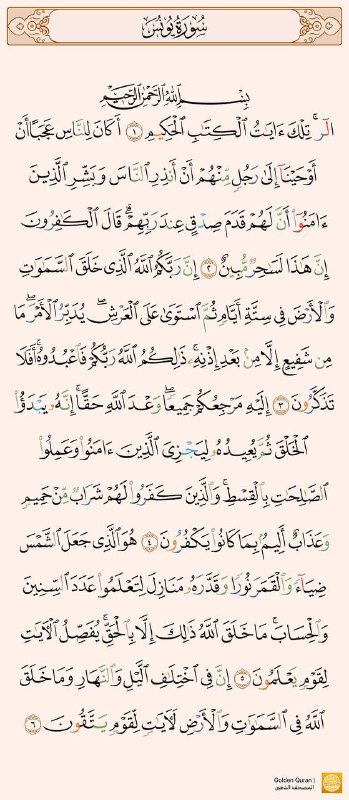 سُورَةُ يُونُسَ
بِسْمِ ٱللَّهِ ٱلرَّحْمَٰنِ ٱلرَّحِيمِ
الٓرۚ تِلْكَ ءَايَٰتُ ٱلْكِتَٰبِ ٱلْحَكِيمِ ١ أَكَانَ لِلنَّاسِ عَجَبًا أَنْ
أَوْحَيْنَآ إِلَىٰ رَجُلٍ مِّنْهُمْ أَنْ أَنذِرِ ٱلنَّاسَ وَبَشِّرِ ٱلَّذِينَ
ءَامَنُوٓا۟ أَنَّ لَهُمْ قَدَمَ صِدْقٍ عِندَ رَبِّهِمْۗ قَالَ ٱلْكَٰفِرُونَ
إِنَّ هَٰذَا لَسَٰحِرٌ مُّبِينٌ ٢ إِنَّ رَبَّكُمُ ٱللَّهُ ٱلَّذِى خَلَقَ ٱلسَّمَٰوَٰتِ
وَٱلْأَرْضَ فِى سِتَّةِ أَيَّامٍ ثُمَّ ٱسْتَوَىٰ عَلَى ٱلْعَرْشِۖ يُدَبِّرُ ٱلْأَمْرَۖ مَا
مِن شَفِيعٍ إِلَّا مِنۢ بَعْدِ إِذْنِهِۦۚ ذَٰلِكُمُ ٱللَّهُ رَبُّكُمْ فَٱعْبُدُوهُۚ أَفَلَا
تَذَكَّرُونَ ٣ إِلَيْهِ مَرْجِعُكُمْ جَمِيعًاۖ وَعْدَ ٱللَّهِ حَقًّاۚ إِنَّهُۥ يَبْدَؤُا۟
ٱلْخَلْقَ ثُمَّ يُعِيدُهُۥ لِيَجْزِىَ ٱلَّذِينَ ءَامَنُوا۟ وَعَمِلُوا۟
ٱلصَّٰلِحَٰتِ بِٱلْقِسْطِۚ وَٱلَّذِينَ كَفَرُوا۟ لَهُمْ شَرَابٌ مِّنْ حَمِيمٍ
وَعَذَابٌ أَلِيمٌۢ بِمَا كَانُوا۟ يَكْفُرُونَ ٤ هُوَ ٱلَّذِى جَعَلَ ٱلشَّمْسَ
ضِيَآءً وَٱلْقَمَرَ نُورًا وَقَدَّرَهُۥ مَنَازِلَ لِتَعْلَمُوا۟ عَدَدَ ٱلسِّنِينَ
وَٱلْحِسَابَۚ مَا خَلَقَ ٱللَّهُ ذَٰلِكَ إِلَّا بِٱلْحَقِّۚ يُفَصِّلُ ٱلْءَايَٰتِ
لِقَوْمٍ يَعْلَمُونَ ٥ إِنَّ فِى ٱخْتِلَٰفِ ٱلَّيْلِ وَٱلنَّهَارِ وَمَا خَلَقَ
ٱللَّهُ فِى ٱلسَّمَٰوَٰتِ وَٱلْأَرْضِ لَءَايَٰتٍ لِّقَوْمٍ يَتَّقُونَ ٦
Golden Quran |
المصحف الذهبي